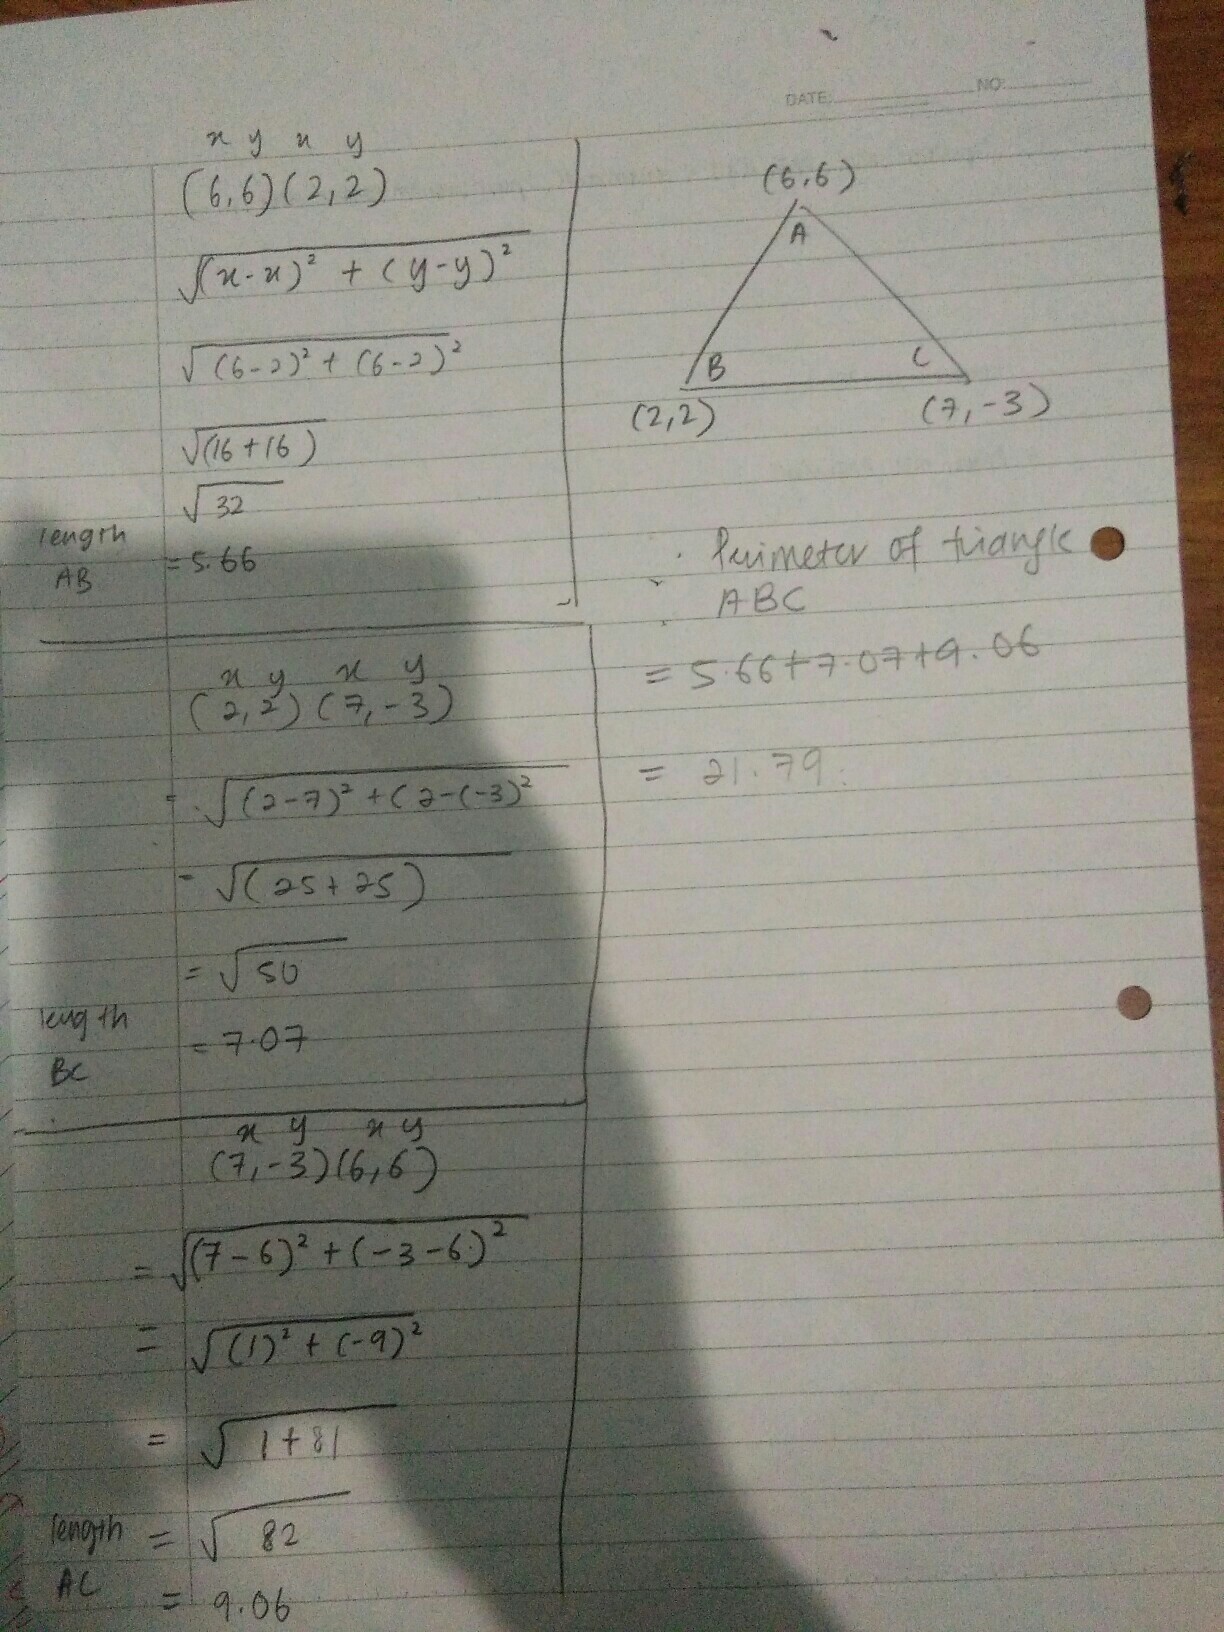 DATE: NO:
x y x y
(6,6)(2,2)
√(x-x)² + (y-y)²
√(6-2)² + (6-2)²
√(16+16)
√32
length
AB
=5.66
x y x y
(2,2)(7,-3)
= √(2-7)² + (2-(-3)²
= √(25+25)
= √50
length
BC
= 7.07
x y x y
(7,-3)(6,6)
= √(7-6)² + (-3-6)²
= √(1)² + (-9)²
= √1+81
length
AC
= √82
= 9.06
(6,6)
A
B
C
(2,2)
(7,-3)
Perimeter of triangle
ABC
= 5.66+7.07+9.06
= 21.79